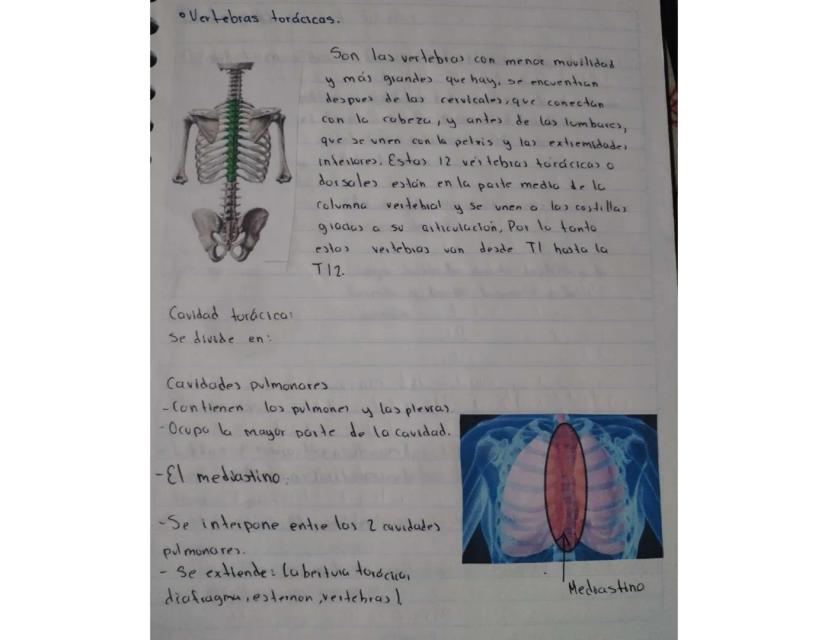 • Vertebras torácicas.
Son las vertebras con menor movilidad
y más grandes que hay, se encuentran
despues de las cervicales, que conectan
con la cabeza, y antes de las lumbares,
que se unen con la pelvis y las extremidades
inferiores. Estas 12 vértebras torácicas o
dorsales están en la parte media de la
columna vertebral y se unen a las costillas
gracias a su articulación, Por lo tanto
estas vertebras van desde T1 hasta la
T12.
Cavidad torácica:
Se divide en:
Cavidades pulmonares
- Contienen los pulmones y las pleuras.
- Ocupa la mayor parte de la cavidad.
- El mediastino:
- Se interpone entre los 2 cavidades
pulmonares.
- Se extiende: (abertura torácica,
diafragma, esternon, vertebras)
Mediastino